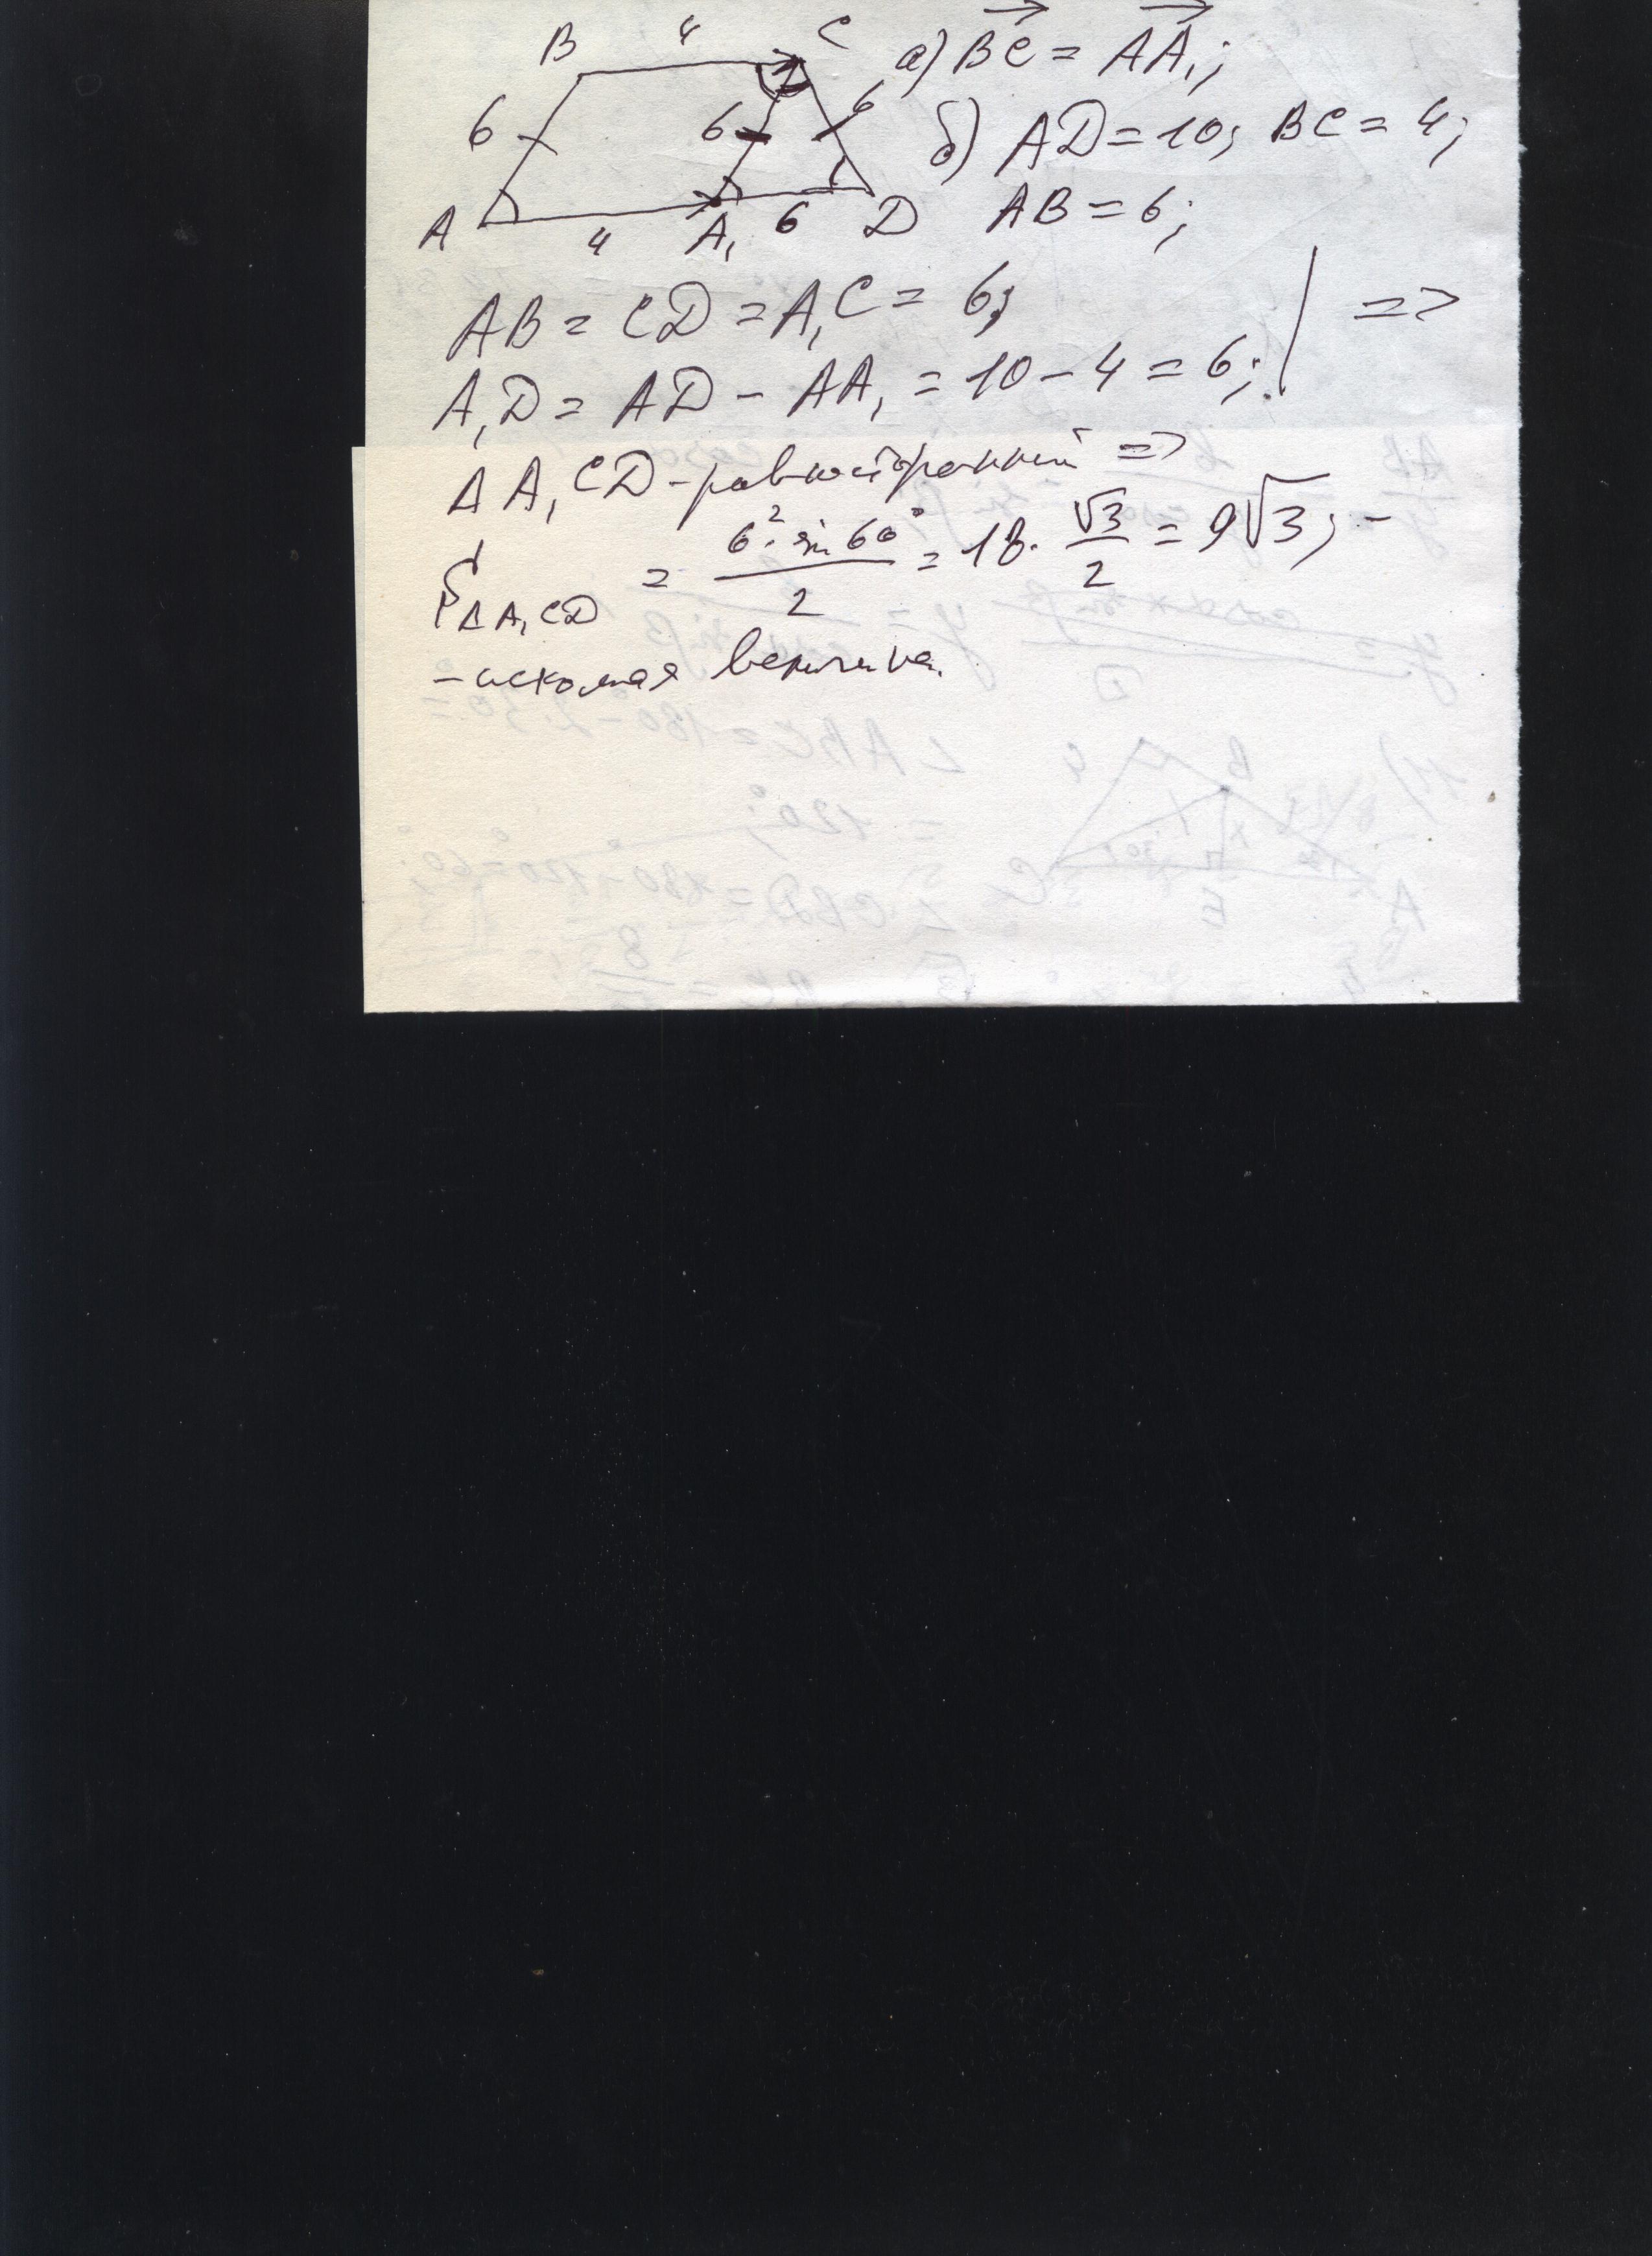 B 4 C
6 6 6
A 4 A₁ 6 D
а) BC = AA₁;
б) AD = 10; BC = 4;
AB = 6;
AB = CD = A₁C = 6;
A₁D = AD - AA₁ = 10 - 4 = 6; | =>
Δ A₁CD - равносторонний =>
S ΔA₁CD = 6²·sin 60° / 2 = 18 · √3 / 2 = 9√3; -
- искомая величина.